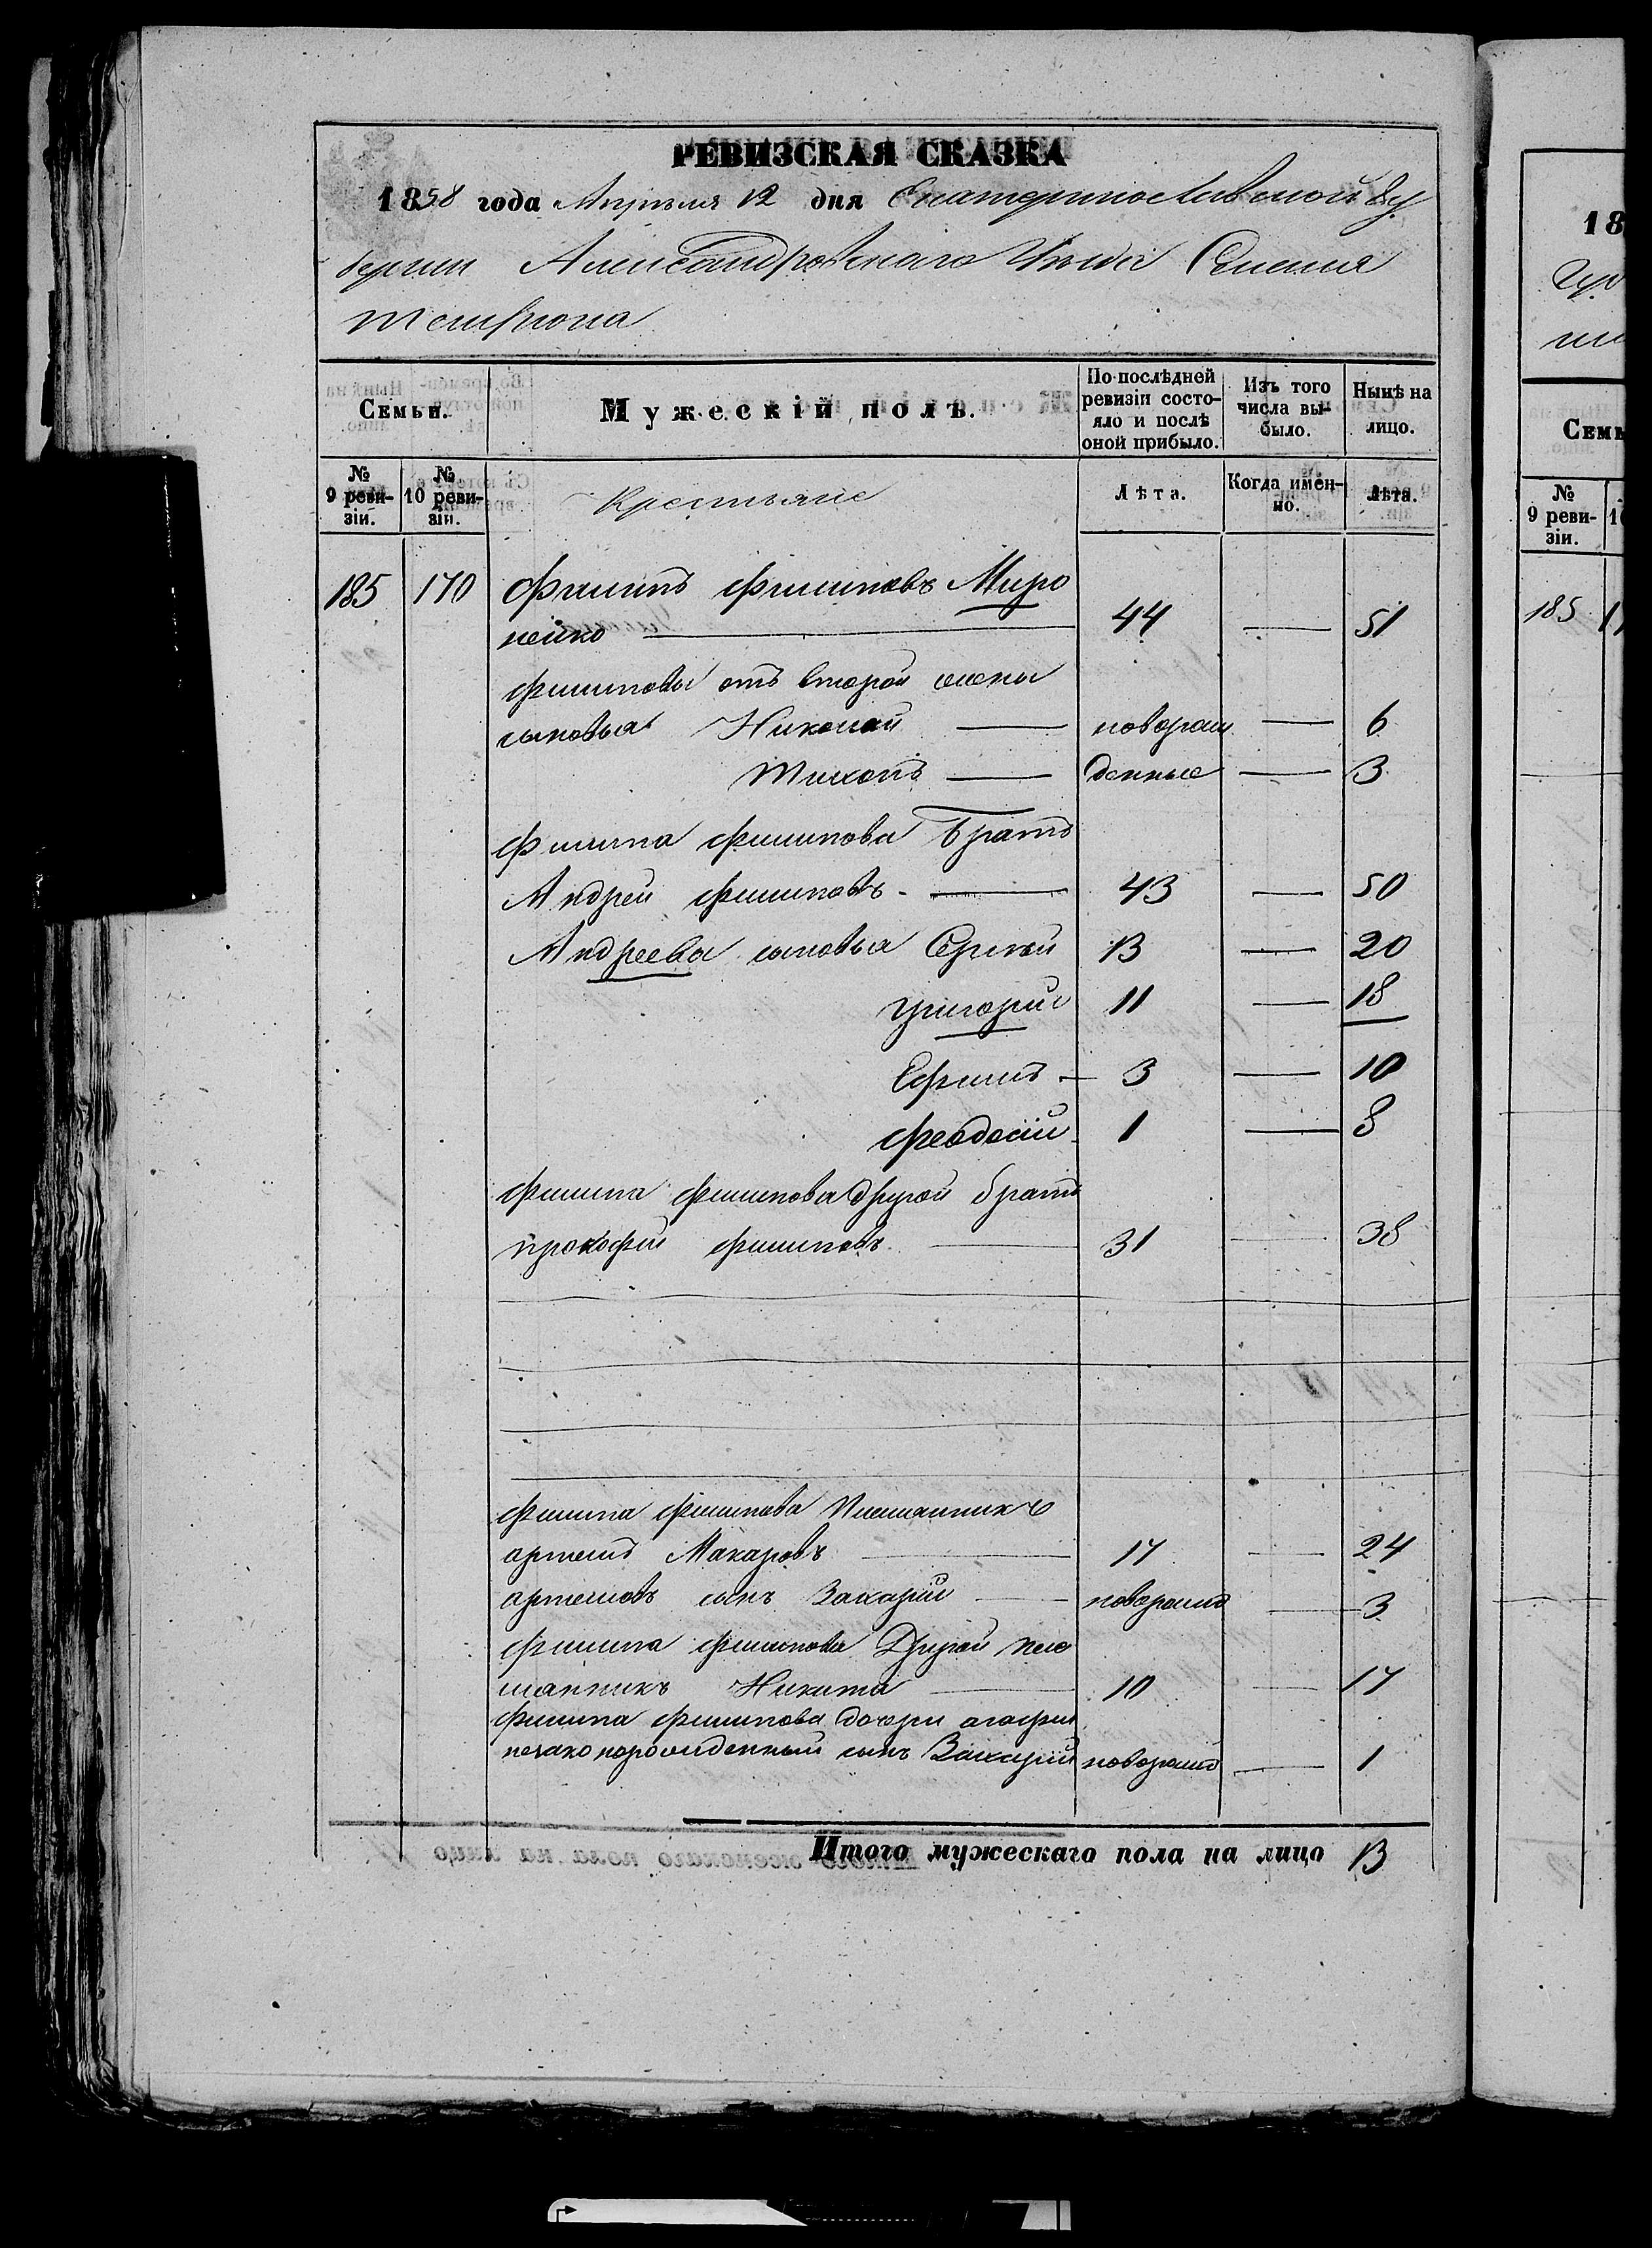 РЕВИЗСКАЯ СКАЗКА
1858 года Апреля 12 дня Екатеринославской Гу
берніи Александровскаго Уѣзда Селенія
Темрюка
18
Семьи.
Мужескій полъ.
По послѣдней ревизіи состояло и послѣ оной прибыло.
Изъ того числа выбыло.
Нынѣ на лицо.
№ 9 ревизіи.
№ 10 ревизіи.
Крестьяне
Лѣта.
Когда именно.
Лѣта.
Семь
№ 9 ревизіи.
185 170 Филипъ Филиповъ Миро
ненко — 44 — 51
185
Филипови отъ второй жены
сыновья Николай — новорож — 6
Тихонъ — денные — 3
Филипа Филипова Братъ
Андрей Филиповъ — 43 — 50
Андреева сыновья Сергѣй 13 — 20
Григорій 11 — 18
Ефимъ — 3 — 10
Феодосій 1 — 8
Филипа Филипова другой братъ
Прокофій Филиповъ — 31 — 38
Филипа Филипова племянникъ
Артемъ Макаровъ — 17 — 24
Артемовъ сынъ Захарій — новорожд — 3
Филипа Филипова Другой пле
мянникъ Никита — 10 — 17
Филипа Филипова дочери Агафіи
незаконорожденный сынъ Захарій новорожд — 1
Итого мужескаго пола на лицо 13